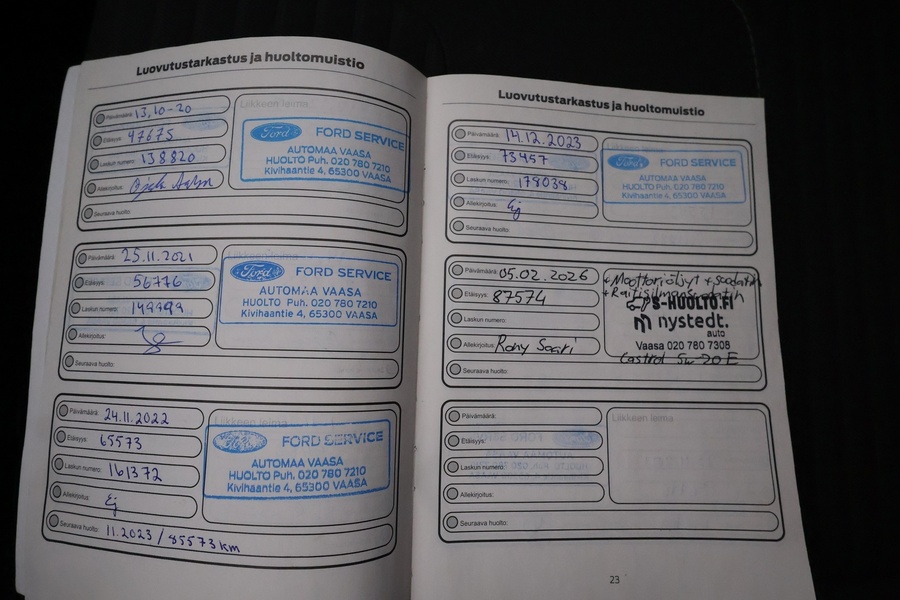 Luovutustarkastus ja huoltomuistio
Päivämäärä: 13.10-20
Etäisyys: 47675
Laskun numero: 138820
Allekirjoitus:
Seuraava huolto:
Liikkeen leima
Ford FORD SERVICE
AUTOMAA VAASA
HUOLTO Puh. 020 780 7210
Kivihaantie 4, 65300 VAASA
Päivämäärä: 25.11.2021
Etäisyys: 56776
Laskun numero: 149999
Allekirjoitus:
Seuraava huolto:
Ford FORD SERVICE
AUTOMAA VAASA
HUOLTO Puh. 020 780 7210
Kivihaantie 4, 65300 VAASA
Päivämäärä: 24.11.2022
Etäisyys: 65573
Laskun numero: 161372
Allekirjoitus: Ej
Seuraava huolto: 11.2023 / 85573 km
Liikkeen leima
FORD SERVICE
AUTOMAA VAASA
HUOLTO Puh. 020 780 7210
Kivihaantie 4, 65300 VAASA
Luovutustarkastus ja huoltomuistio
Päivämäärä: 14.12.2023
Etäisyys: 73457
Laskun numero: 178038
Allekirjoitus: Ej
Seuraava huolto:
Ford FORD SERVICE
AUTOMAA VAASA
HUOLTO Puh. 020 780 7210
Kivihaantie 4, 65300 VAASA
Päivämäärä: 05.02.2026
Etäisyys: 87574
Laskun numero:
Allekirjoitus: Rony Saari
Seuraava huolto:
+Moottoriöljyt + suodatin
+Raitisilmansuodatin
S-HUOLTO.FI
nystedt.
auto
Vaasa 020 780 7308
Castrol 5w-20 E
Päivämäärä:
Etäisyys:
Laskun numero:
Allekirjoitus:
Seuraava huolto:
Liikkeen leima
23